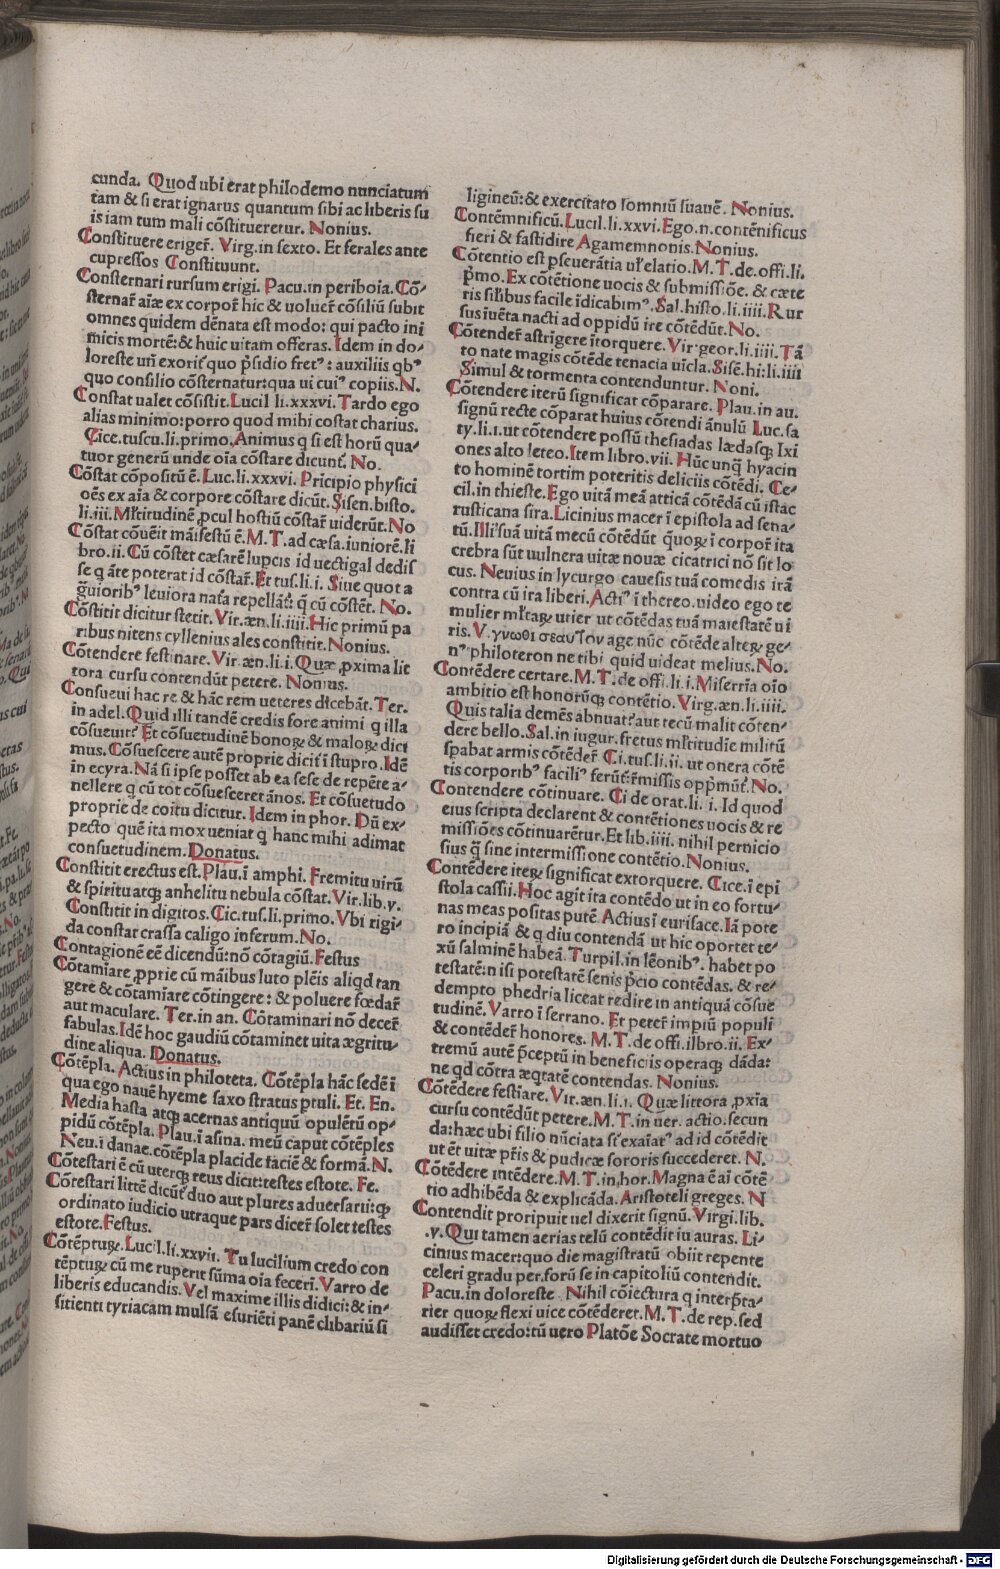 cunda. Quod ubi erat philodemo nunciatum
tam & si erat ignarus quantum sibi ac liberis su
is iam tum mali cõstitueretur. Nonius.
Constituere eriger̃. Virg. in sexto. Et ferales ante
cupressos Constituunt.
Consternari rursum erigi. Pacu. in periboia. Cõ-
sternar̃ aiæ ex corpor̃ hic & uolucr̃ cõsiliũ subit
omnes quidem dẽnata est modo: qui pacto ini
micis mortẽ: & huic uitam offeras. Idem in do-
loreste uñ exorit̃ quo p̃sidio fretꝰ: auxiliis qbꝰ
quo consilio cõsternatur: qua ui cuiꝰ copiis. N.
Constat ualet cõsistit. Lucil li. xxxvi. Tardo ego
alias minimo: porro quod mihi cõstat charius.
Cice. tuscu. li. primo. Animus q̃ si est horũ qua-
tuor generũ unde oĩa cõstare dicunt̃. No.
Cõstat cõpositũ ẽ. Luc. li. xxxvi. Prĩcipio physici
oẽs ex aĩa & corpore cõstare dicũt. Sisen. histo.
li. iii. Ml̃titudinẽ ꝓcul hostiũ cõstar̃ uiderũt. No
Cõstat cõuẽit mãifestũ ẽ. M. T. ad cæsa. iuniorẽ. li
bro. ii. Cũ cõstet cæsarẽ lupcis id uectigal dedis
se q ãte poterat id cõstar̃. Et tus. li. i. Siue quot a
g̃uioribꝰ leuiora nat̃a repellãt̃: q̃ cũ cõstẽt. No.
Cõstitit dicitur stetit. Vir. æn. li. iiii. Hic primũ pa
ribus nitens cyllenius ales constitit. Nonius.
Cõtendere festinare. Vir. æn. li. i. Quæ ꝓxima lit
tora cursu contendũt petere. Nonius.
Consueui hac re & hãc rem ueteres dicebãt. Ter.
in adel. Quid illi tandẽ credis fore animi q illa
cõsueuit? Et cõsuetudinẽ bonoꝝ & maloꝝ dici
mus. Cõsuescere autẽ proprie dicit̃ ĩ stupro. Idẽ
in ecyra. Nã si ipse posset ab ea sese de repẽte a-
uellere q̃ cũ tot cõsuesceret ãnos. Et cõsuetudo
proprie de coitu dicitur. Idem in phor. Dũ ex-
pecto quẽ ita mox ueniat q̃ hanc mihi adimat
consuetudinem. Donatus.
Constitit erectus est. Plau. ĩ amphi. Fremitu uirũ
& spiritu atqꝫ anhelitu nebula cõstat. Vir. lib. v.
Constitit in digitos. Cic. tus. li. primo. Vbi rigi-
da constat crassa caligo inferum. No.
Contagionẽ eẽ dicendũ: nõ cõtagiũ. Festus
Cõtamiare ꝓprie cũ mãibus luto plẽis aliqd tan
gere & cõtamiare cõtingere: & poluere fœdar̃
aut maculare. Ter. in an. Cõtaminari nõ decer̃
fabulas. Idẽ hoc gaudiũ cõtaminet uita ægritu-
dine aliqua. Donatus.
Cõtẽpla. Actius in philoteta. Cõtẽpla hãc sedẽ ĩ
qua ego nauẽ hyeme saxo stratus ꝑtuli. Et. En.
Media hasta atqꝫ acernas antiquũ opulẽtũ op-
pidũ cõtẽpla. Plau. ĩ asina. meũ caput cõtẽples
Neu. ĩ danae. cõtẽpla placide faciẽ & formã. N.
Cõtestari ẽ cũ uterqꝫ reus dicit: testes estote. Fe.
Cõtestari littẽ dicũt̃ duo aut plures aduersarii: qꝫ
ordinato iudicio utraque pars dicer̃ solet testes
estote. Festus.
Cõtẽptuꝝ. Lucil. li. xxvii. Tu lucilium credo con
tẽptuꝝ cũ me ruperit sũma oia feceri. Varro de
liberis educandis. Vel maxime illis didici: & in-
sitienti tyriacam mulsã esuriẽti panẽ clibariũ si
ligineũ: & exercitato somniũ suauẽ. Nonius.
Contẽmnificũ. Lucil. li. xxvi. Ego. n. contẽnificus
fieri & fastidire Agamemnonis. Nonius.
Cõtentio est pseuerãtia ul̃ elatio. M. T. de. offi. li.
p̃mo. Ex cõtẽtione uocis & submissiõe. & cæte
ris sil̃ibus facile ĩdicabimꝰ. Sal. histo. li. iiii. Rur
sus iuẽta nacti ad oppidũ ire cõtẽdũt. No.
Cõtender̃ astrigere ĩtorquere. Vir geor. li. iiii. Tã
to nate magis cõtẽde tenacia uĩcla. Sisẽ. hi: li. iiii
Simul & tormenta contenduntur. Noni.
Cõtendere iterũ significat cõparare. Plau. in au.
signũ recte cõparat huius cõtendi ãnulũ Luc. sa
ty. li. i. ut cõtendere possũ thesiadas lædasqꝫ Ixi
ones alto leteo. Item libro. vii. Hũc unq̃ hyacin
to hominẽ tortim poteritis deliciis cõtẽdi. Ce-
cil. in thieste. Ego uitã meã atticã cõtẽdã cũ istac
rusticana sira. Licinius macer ĩ epistola ad sena-
tũ. Illi suã uitã mecũ cõtẽdũt quoꝝ ĩ corpor̃ ita
crebra sũt uulnera uitæ nouæ cicatrici nõ sit lo
cus. Neuius in lycurgo cauesis tuã comedis irã
contra cũ ira liberi. Actiꝰ ĩ thereo. uideo ego te
mulier ml̃taꝝ utier ut cõtẽdas tuã maiestatẽ ui
ris. V. γνωθι σεαυτον age nũc cõtẽde alteꝝ ge-
nꝰ philoteron ne tibi quid uideat melius. No.
Contẽdere certare. M. T. de offi. li. i. Miserria oĩo
ambitio est honorũqꝫ contẽtio. Virg. æn. li. iiii.
Quis talia demẽs abnuat? aut tecũ malit cõten-
dere bello. Sal. in iugur. fretus ml̃titudĩe militũ
spabat armis cõtẽder̃. Ci. tus. li. ii. ut onera cõtẽ
tis corporibꝰ faciliꝰ ferũt̃: r̃missis opp̃mũt̃. No.
Contendere cõtinuare. Ci de orat. li. i. Id quod
eius scripta declarent & contẽtiones uocis & re
missiões cõtinuarẽtur. Et lib. iiii. nihil pernicio
sius q̃ sine intermissione contẽtio. Nonius.
Contẽdere iteꝝ significat extorquere. Cice. ĩ epi
stola cassii. Hoc agit ita contẽdo ut in eo fortu-
nas meas positas putẽ. Actius ĩ eurisace. Iã pote
ro incipiã & q diu contendã ut hic oportet te-
xũ salminẽ habeã. Turpil. in lẽonibꝰ. habet po
testatẽ: nisi potestatẽ senis p̃cio contẽdas. & re-
dempto phedria liceat redire in antiquã cõsue
tudinẽ. Varro ĩ serrano. Et peter̃ impiũ populi
& contẽder̃ honores. M. T. de offi. ilbro. ii. Ex-
tremũ autẽ p̃ceptũ in beneficiis operaqꝫ dãda:
ne qd cõtra æqtatẽ contendas. Nonius.
Cõtẽdere festiare. Vir. æn. li. i. Quæ littora ꝓxia
cursu contẽdũt petere. M. T. in uer. actio. secun
da: hæc ubi filio nũciata sĩ exaĩatꝰ ad id cõtẽdit
ut ẽt uitæ p̃ris & pudicæ sororis succederet. N.
Cõtẽdere intẽdere. M. T. in, hor. Magna ẽ aĩ cõtẽ
tio adhibẽda & explicãda. Aristoteli greges. N
Contendit proripuit uel dixerit signũ. Virgi. lib.
.v. Qui tamen aerias telũ contẽdit iu auras. Li-
cinius macer: quo die magistratũ obiit repente
celeri gradu per. forũ se in capitoliũ contendit.
Pacu. in doloreste Nihil cõiectura q interp̃ta-
rier quoꝝ flexi uice cõtẽderet. M. T. de rep. sed
audisset credo: tũ uero Platõe Socrate mortuo
Digitalisierung gefördert durch die Deutsche Forschungsgemeinschaft - DFG